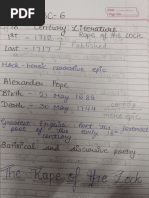 CC-6
Century Literature
1st - 1712 Rape of the Lock
Last - 1717 Published
Mock-heroic narrative epic
Alexander Pope
Birth - 21 May 1688
Death - 30 May 1744
Greatest English Poet
part of the early
Satirical and discursive poetry
The Rape of the Lock